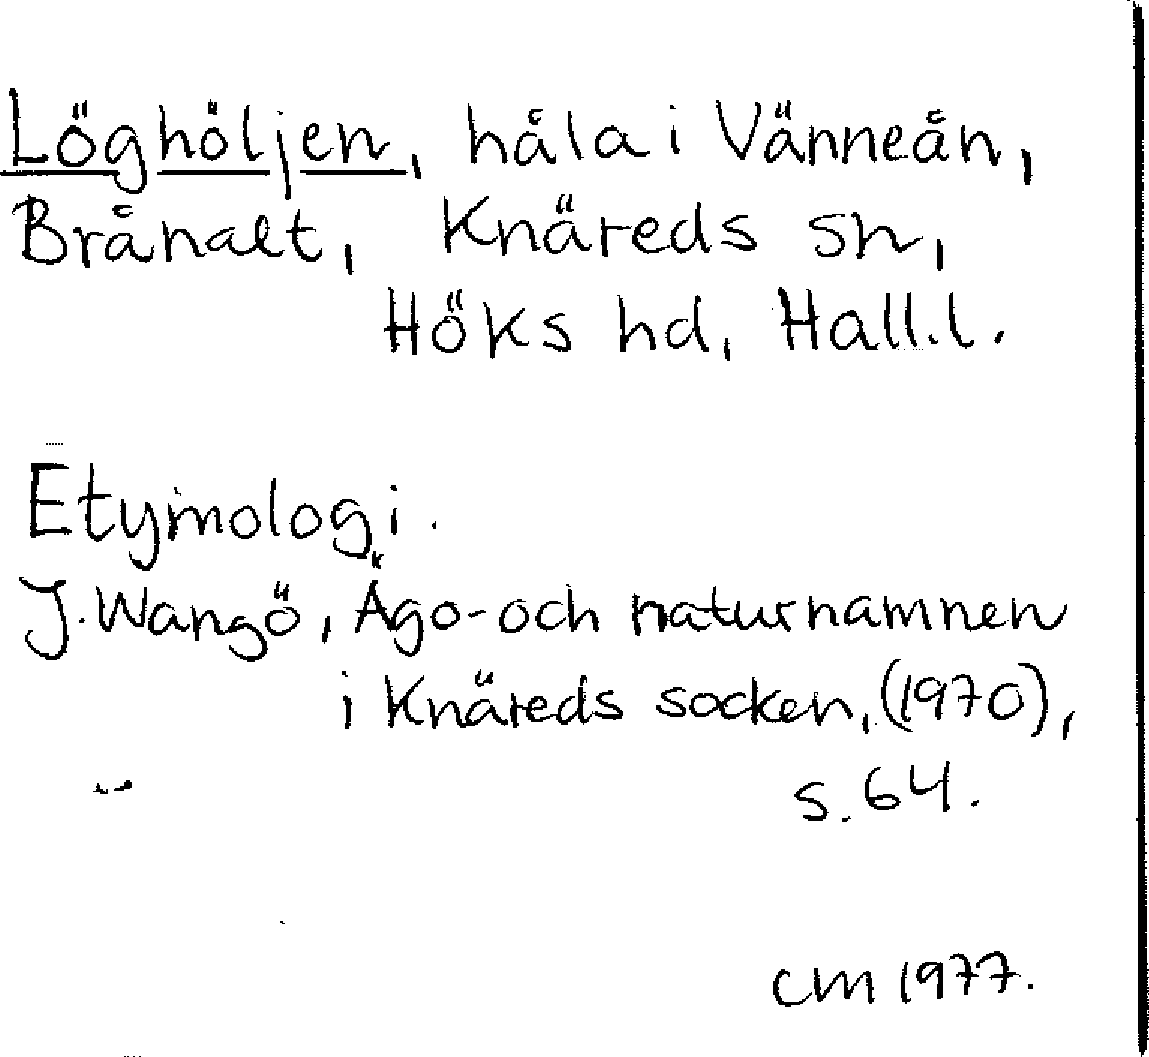 Löghöljen, håla i Vänneån,
Brånalt, Knäreds sn,
Höks hd, Hall.l.
Etymologi.
J. Wangö, Ägo- och naturnamnen
i Knäreds socken, (1970),
s. 64.
CM 1977.